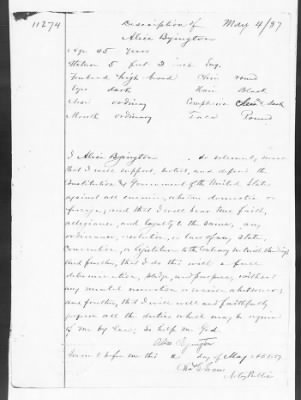 11274
Description of May 4/87
Alice Byington
Age 45 years
Stature 5 feet 2 inch Eng.
Forehead high broad Chin round
Eyes dark Hair Black
Nose ordinary Complexion dark
Mouth ordinary Face Round
I Alice Byington do solemnly swear
that I will support, protect, and defend the
Constitution & Government of the United States
against all enemies, whether domestic or
foreign; and that I will bear true faith,
allegiance, and loyalty to the same, any
ordinance, resolution, or law of any State,
Convention, or Legislature to the Contrary notwithstanding
and further, that I do this with a full
determination, pledge, and purpose, without
any mental reservation or evasion whatsoever;
and further, that I will well and faithfully
perform all the duties which may be required
of me by Law; So help me God
Alice Byington
Sworn to before me this day of May